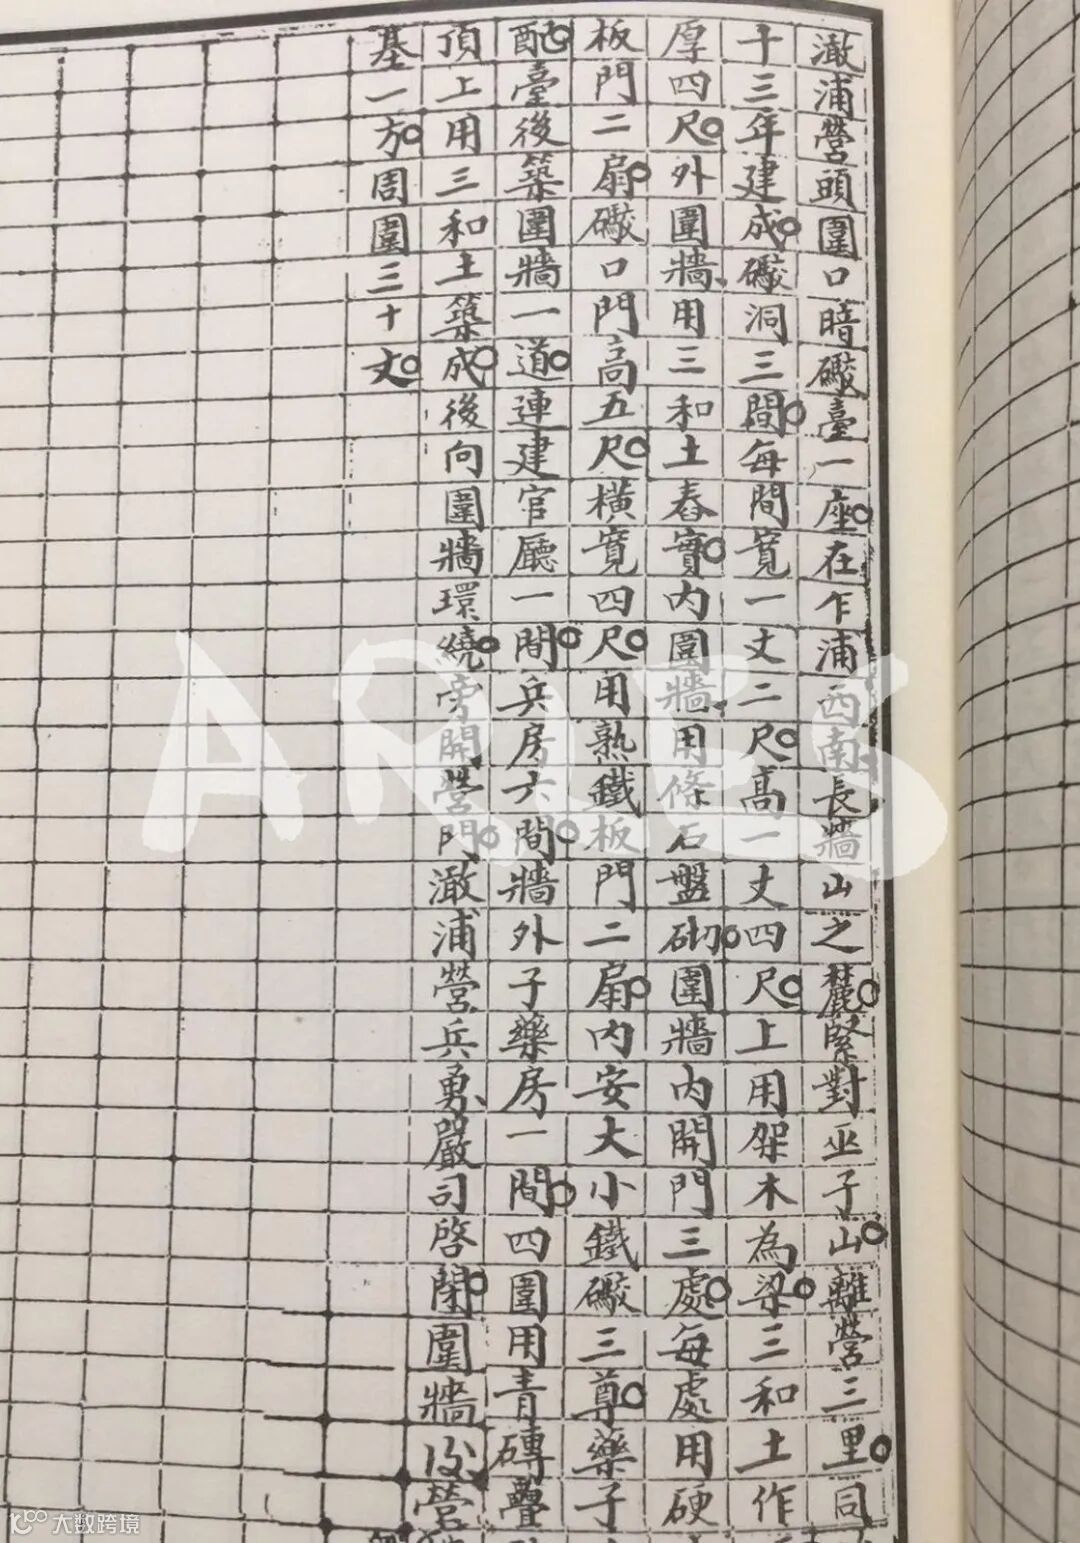 澉浦營頭圍口暗礮臺一座在乍浦西南長牆山之麓緊對巫子山離營三里同
十三年建成礮洞三間每間寬一丈二尺高一丈四尺上用架木為梁三和土作
厚四尺外圍牆用三和土舂實內圍牆用條石盤砌圍牆內開門三處每處用硬
板門二扇礮口門高五尺橫寬四尺用熟鐵板門二扇內安大小鐵礮三尊藥子
配臺後築圍牆一道連建官廳一間兵房六間牆外子藥房一間四圍用青磚疊
頂上用三和土築成後向圍牆環繞旁開營門澉浦營兵勇嚴司啓閉圍牆後營
基一方周圍三十丈
ARIES
大数跨境